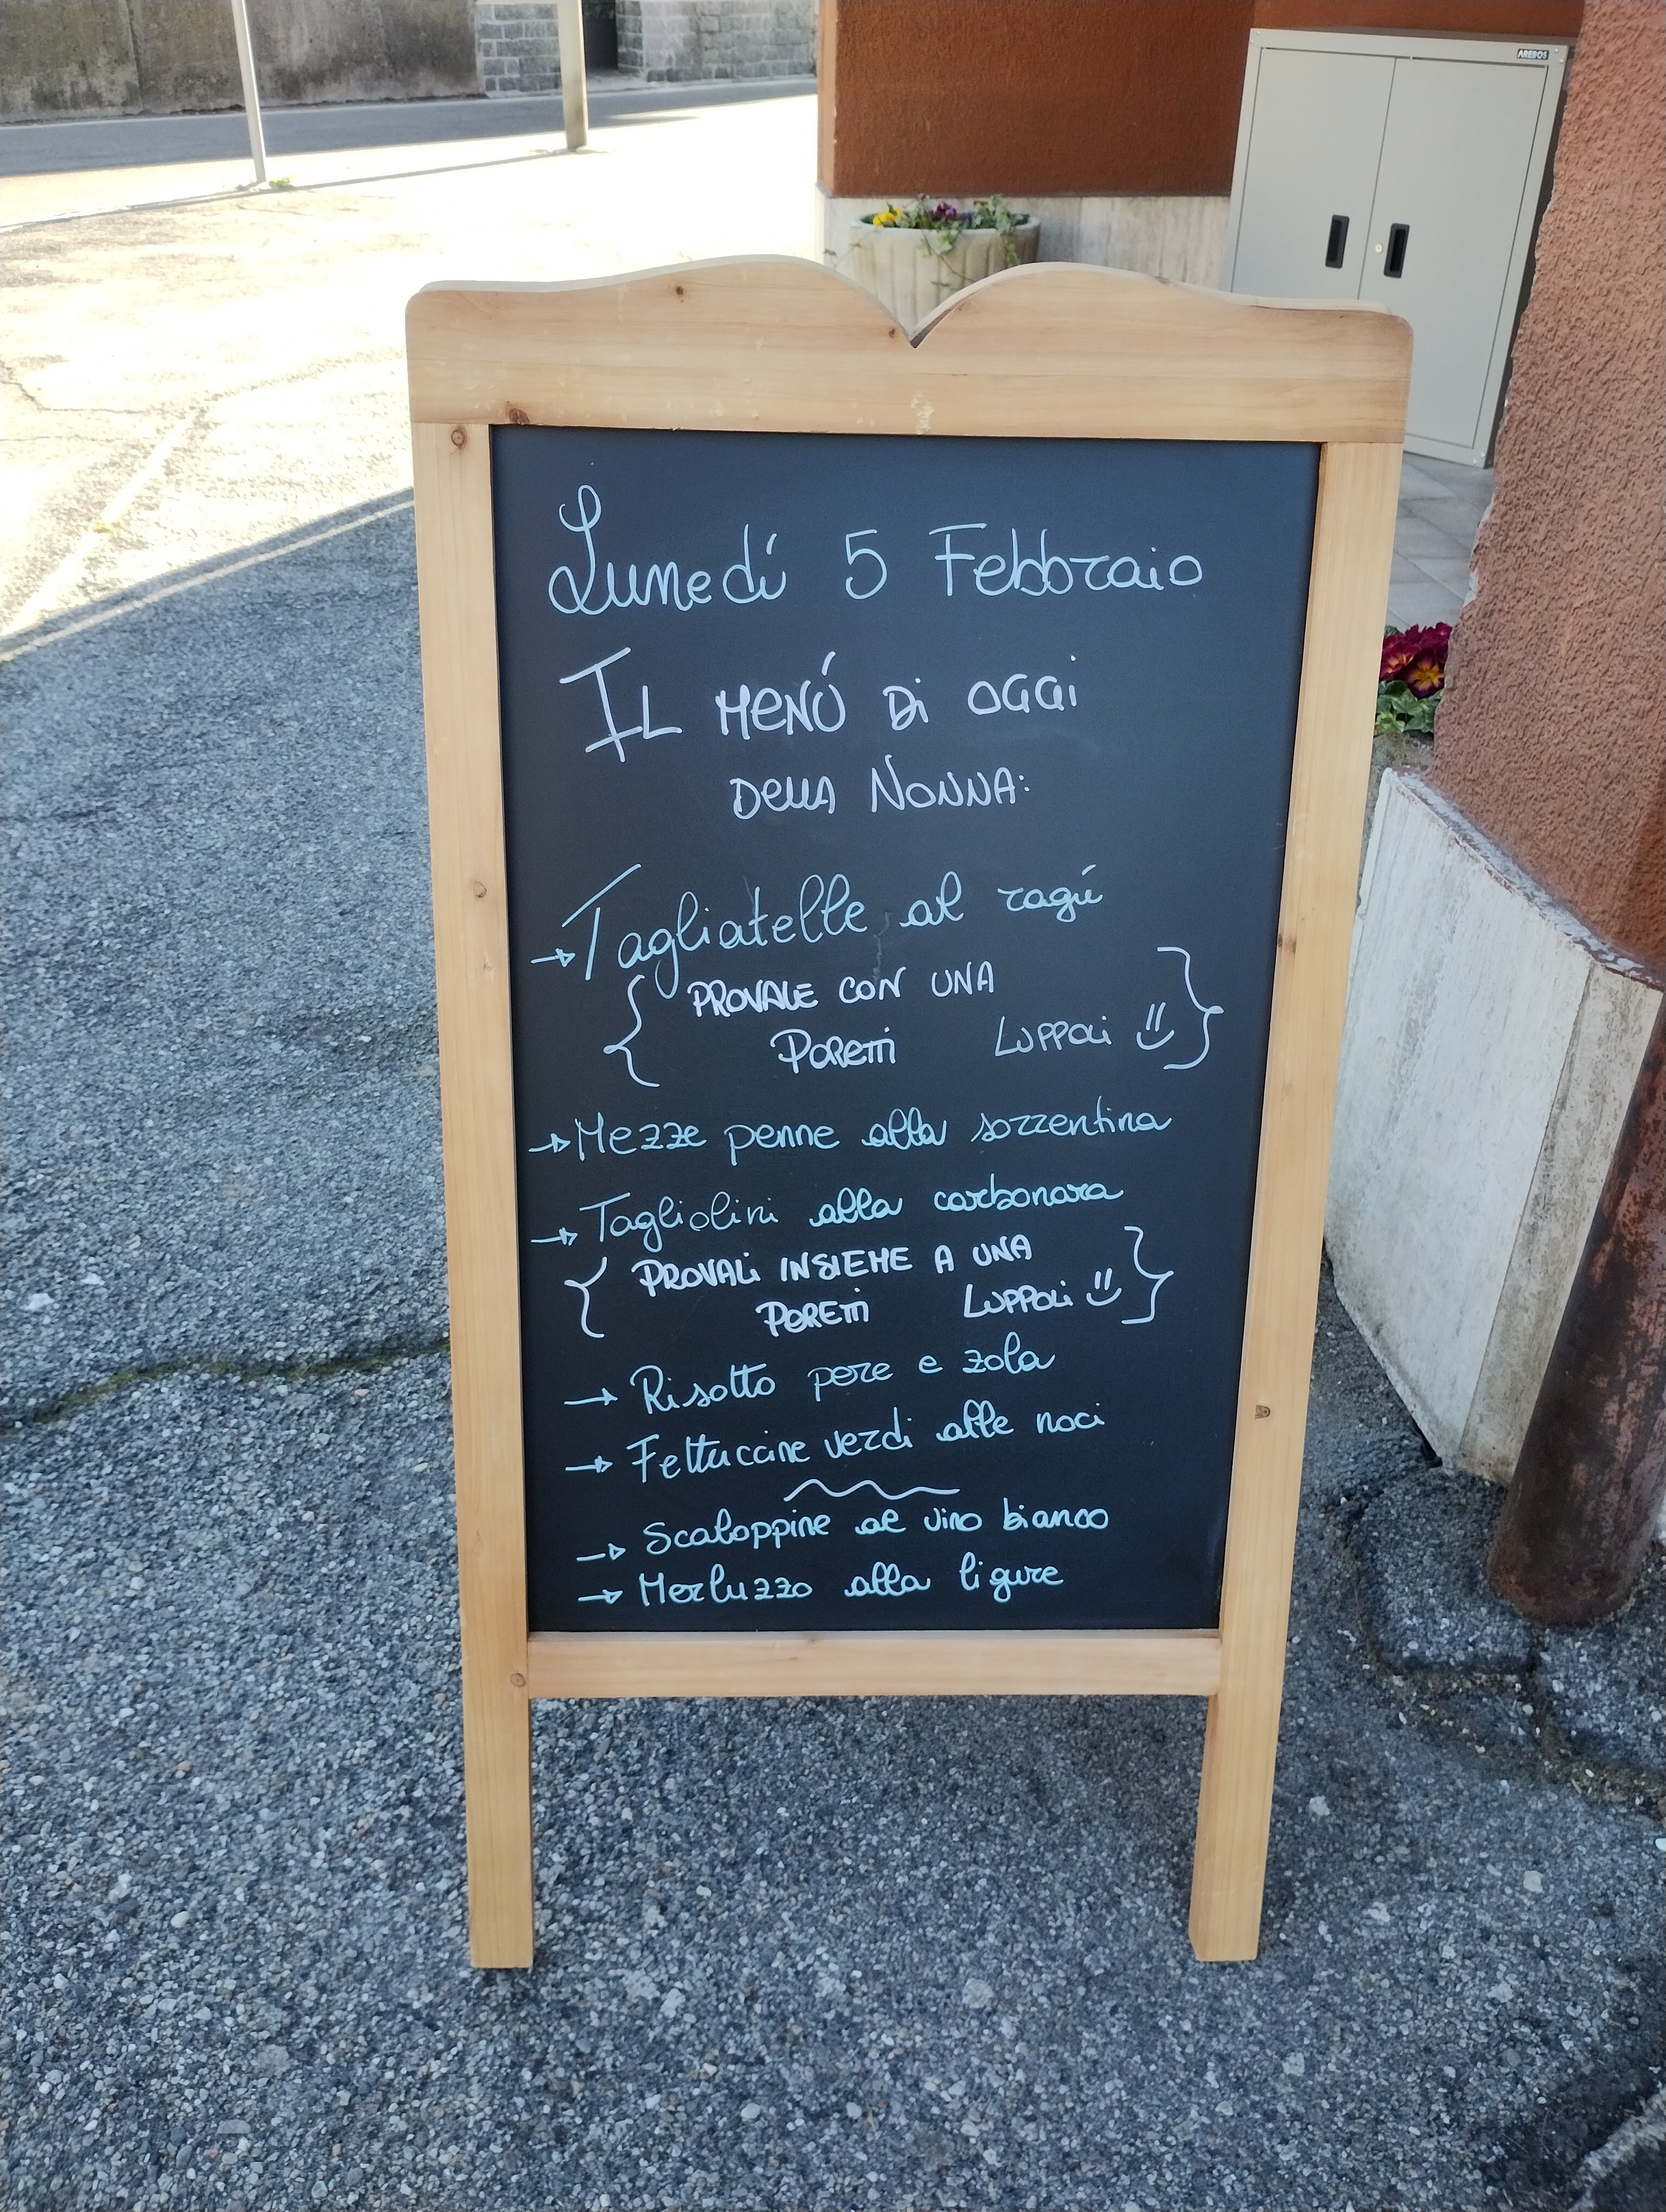 AREBOS
Lunedí 5 Febbraio
IL MENÚ Di OGGi
DELLA NONNA:
→ Tagliatelle al ragú
{ PROVALE CON UNA
PORETTI LUPPOLI }
→ Mezze penne alla sorrentina
→ Tagliolini alla carbonara
{ PROVALI INSIEME A UNA
PORETTI LUPPOLI }
→ Risotto pere e zola
→ Fettuccine verdi alle noci
→ Scaloppine al vino bianco
→ Merluzzo alla ligure